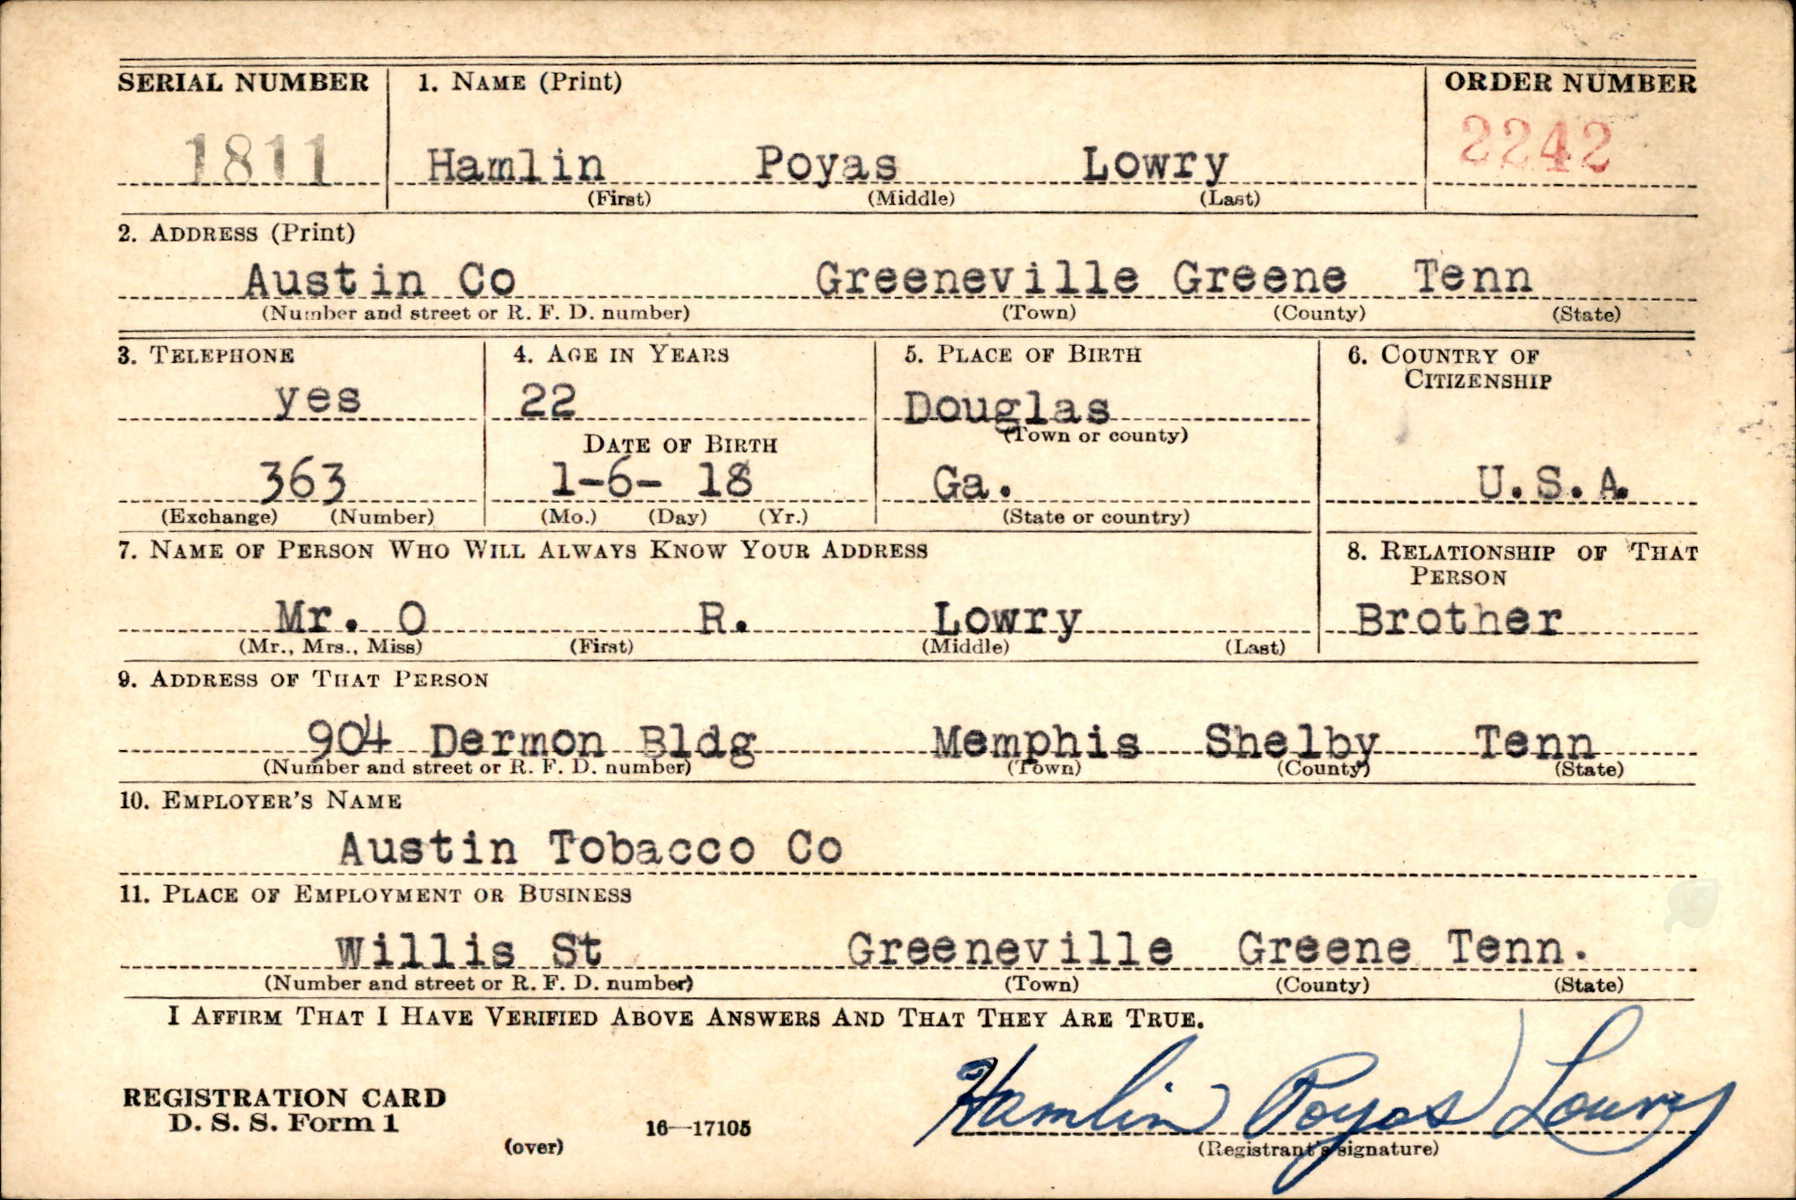 SERIAL NUMBER 1. NAME (Print) ORDER NUMBER
1811 Hamlin Poyas Lowry 2242
(First) (Middle) (Last)
2. ADDRESS (Print)
Austin Co Greeneville Greene Tenn
(Number and street or R. F. D. number) (Town) (County) (State)
3. TELEPHONE 4. AGE IN YEARS 5. PLACE OF BIRTH 6. COUNTRY OF
CITIZENSHIP
yes 22 Douglas
(Town or county)
DATE OF BIRTH
363 1-6- 18 Ga. U.S.A.
(Exchange) (Number) (Mo.) (Day) (Yr.) (State or country)
7. NAME OF PERSON WHO WILL ALWAYS KNOW YOUR ADDRESS 8. RELATIONSHIP OF THAT
PERSON
Mr. O R. Lowry Brother
(Mr., Mrs., Miss) (First) (Middle) (Last)
9. ADDRESS OF THAT PERSON
904 Dermon Bldg Memphis Shelby Tenn
(Number and street or R. F. D. number) (Town) (County) (State)
10. EMPLOYER'S NAME
Austin Tobacco Co
11. PLACE OF EMPLOYMENT OR BUSINESS
Willis St Greeneville Greene Tenn.
(Number and street or R. F. D. number) (Town) (County) (State)
I AFFIRM THAT I HAVE VERIFIED ABOVE ANSWERS AND THAT THEY ARE TRUE.
Hamlin Poyas Lowry
REGISTRATION CARD
D. S. S. Form 1
(over) 16—17105 (Registrant's signature)